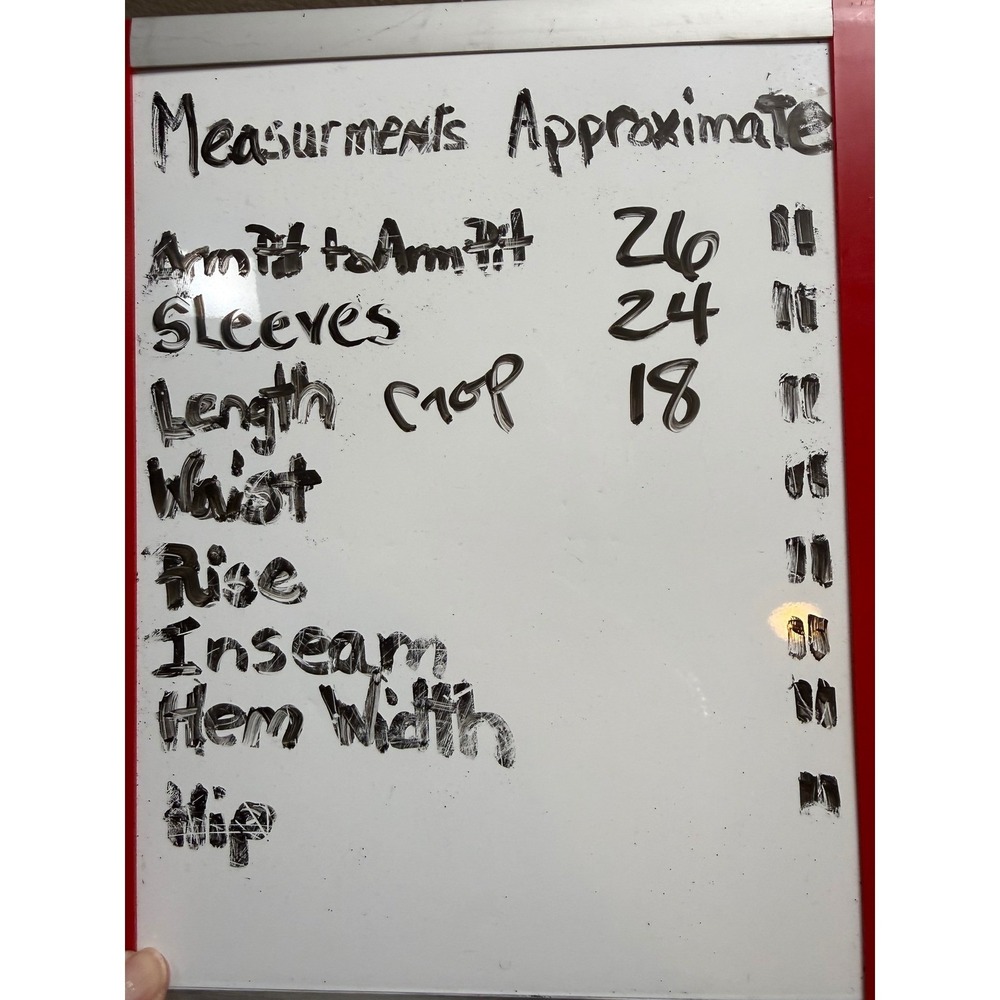 Measurments Approximate
ArmPit to ArmPit 26 "
Sleeves 24 "
Length crop 18 "
Waist "
Rise "
Inseam "
Hem Width "
Hip "